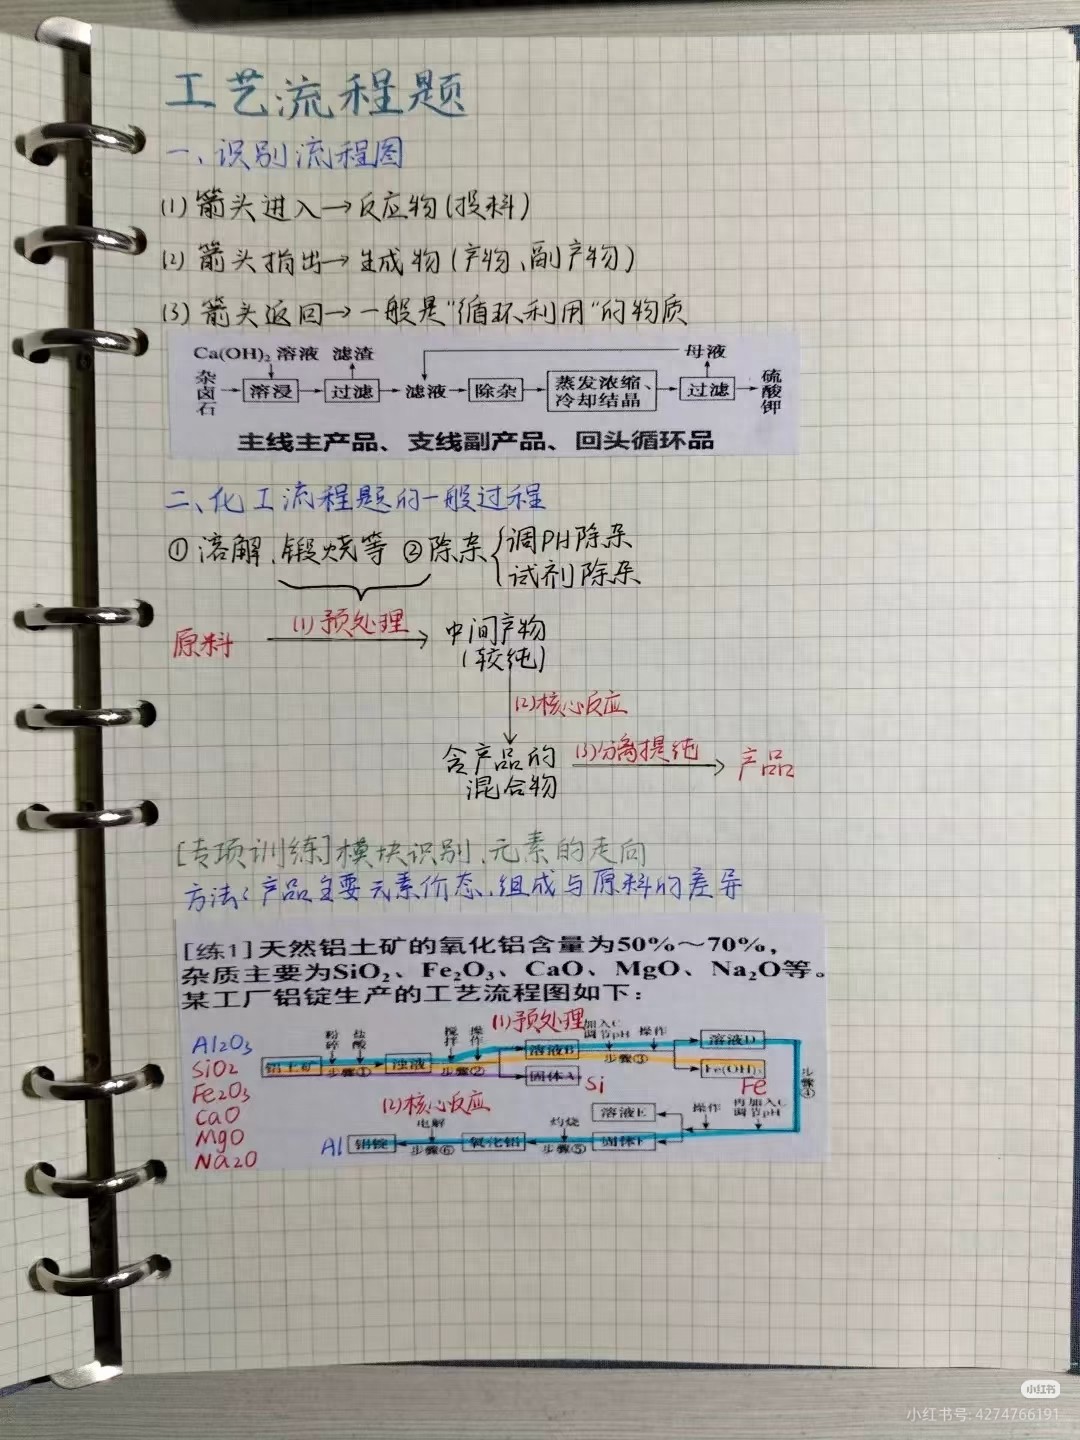 工艺流程题
一、识别流程图
(1) 箭头进入→反应物(投料)
(2) 箭头指出→生成物(产物、副产物)
(3) 箭头返回→一般是"循环利用"的物质
Ca(OH)₂ 溶液 滤渣 母液
杂卤石 溶浸 过滤 滤液 除杂 蒸发浓缩、冷却结晶 过滤 硫酸钾
主线主产品、支线副产品、回头循环品
二、化工流程题的一般过程
① 溶解、煅烧等 ② 除杂 调PH除杂
试剂除杂
原料 (1)预处理 中间产物
(较纯)
(2)核心反应
含产品的 (3)分离提纯 产品
混合物
[专项训练]模块识别、元素的走向
方法:产品主要元素价态、组成与原料的差异
[练1]天然铝土矿的氧化铝含量为50%～70%,
杂质主要为SiO₂、Fe₂O₃、CaO、MgO、Na₂O等。
某工厂铝锭生产的工艺流程图如下:
(1)预处理
粉碎 盐酸 搅拌 操作 加入C调节pH 操作
Al₂O₃ 铝土矿 步骤① 浊液 步骤② 溶液B 步骤③ 溶液D
SiO₂ 固体A Si Fe(OH)₃ Fe
Fe₂O₃ 步骤④
CaO (2)核心反应 溶液E 操作 再加入C调节pH
MgO 电解 灼烧
Al 铝锭 步骤⑥ 氧化铝 步骤⑤ 固体F
Na₂O
小红书
小红书号: 4274766191